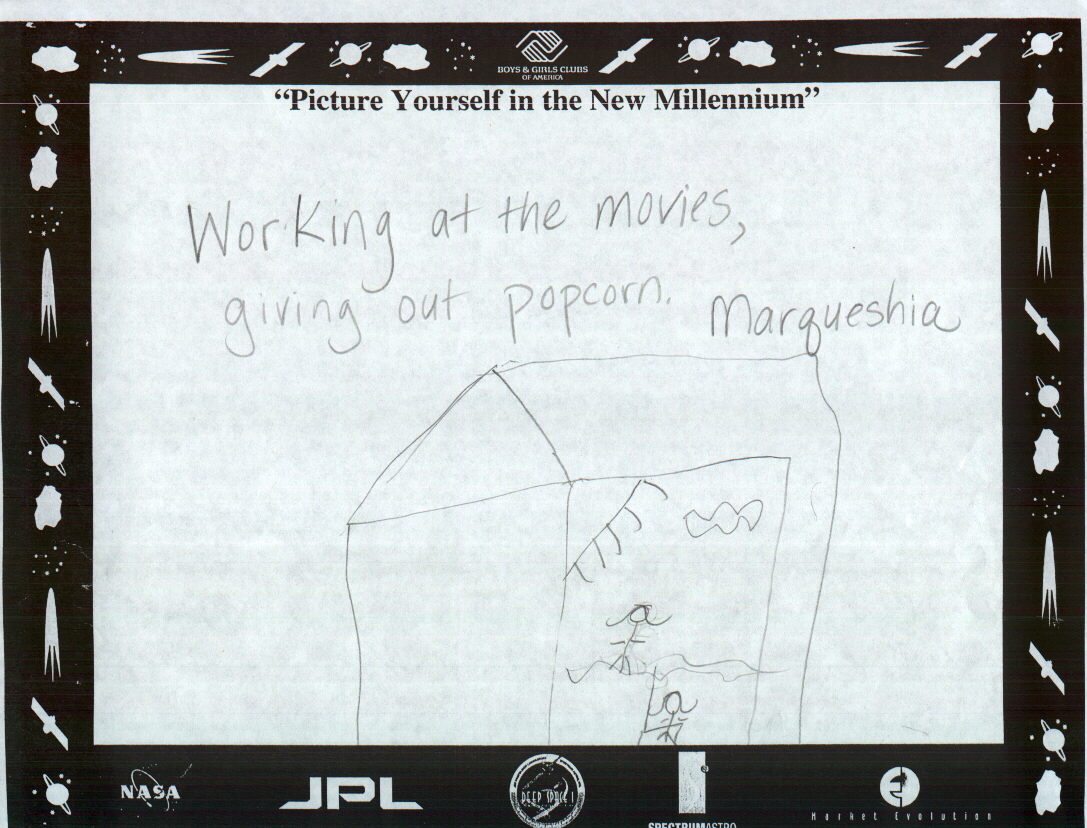 BOYS & GIRLS CLUBS
OF AMERICA
“Picture Yourself in the New Millennium”
Working at the movies,
giving out popcorn. Marqueshia
NASA
JPL
DEEP SPACE 1
SPECTRUMASTRO
Market Evolution